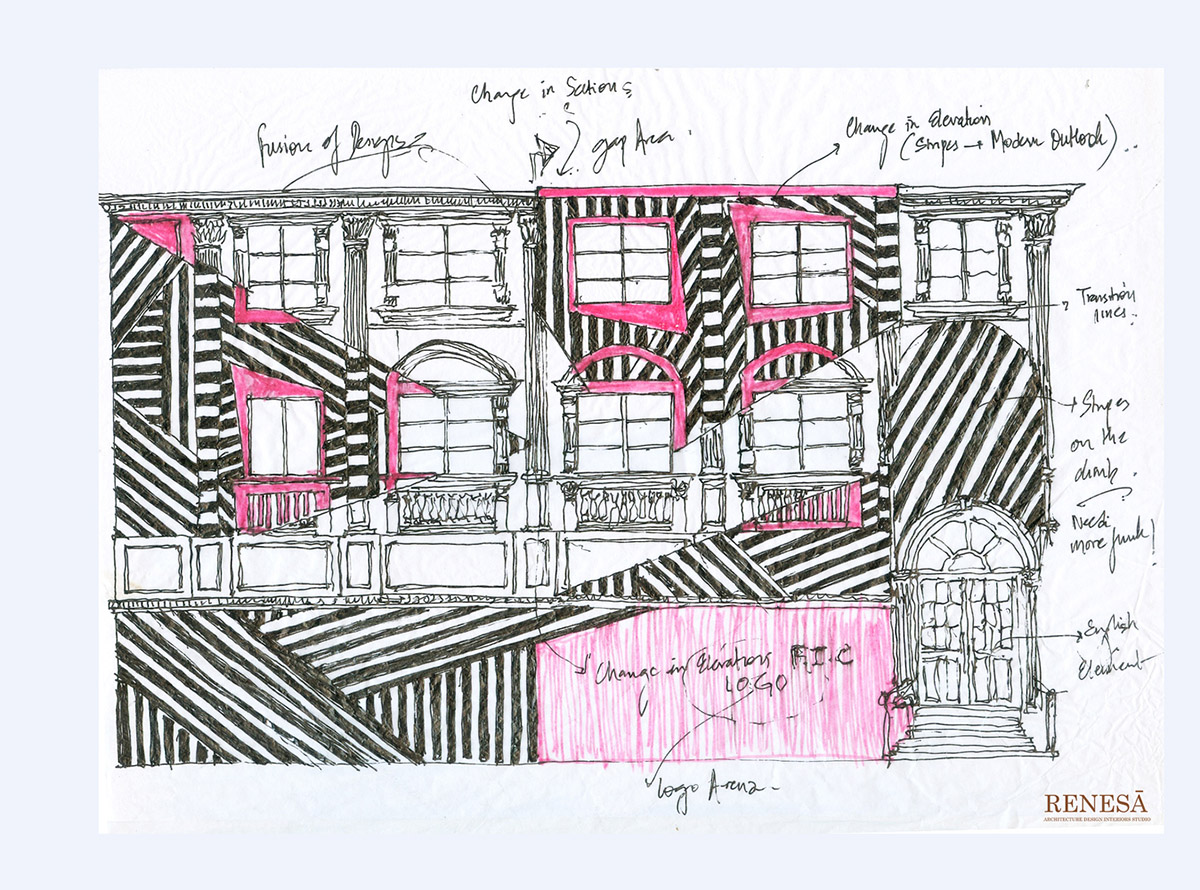 Change in Sections
Fusion of Designs
gap Area.
Change in Elevation
(Stripes → Modern Outlook)..
Transition
lines..
Stripes
on the
Need
more funk!
English
Element
Change in Elevation F.I.C
LOGO
Logo Arena
RENESĀ
ARCHITECTURE DESIGN INTERIORS STUDIO